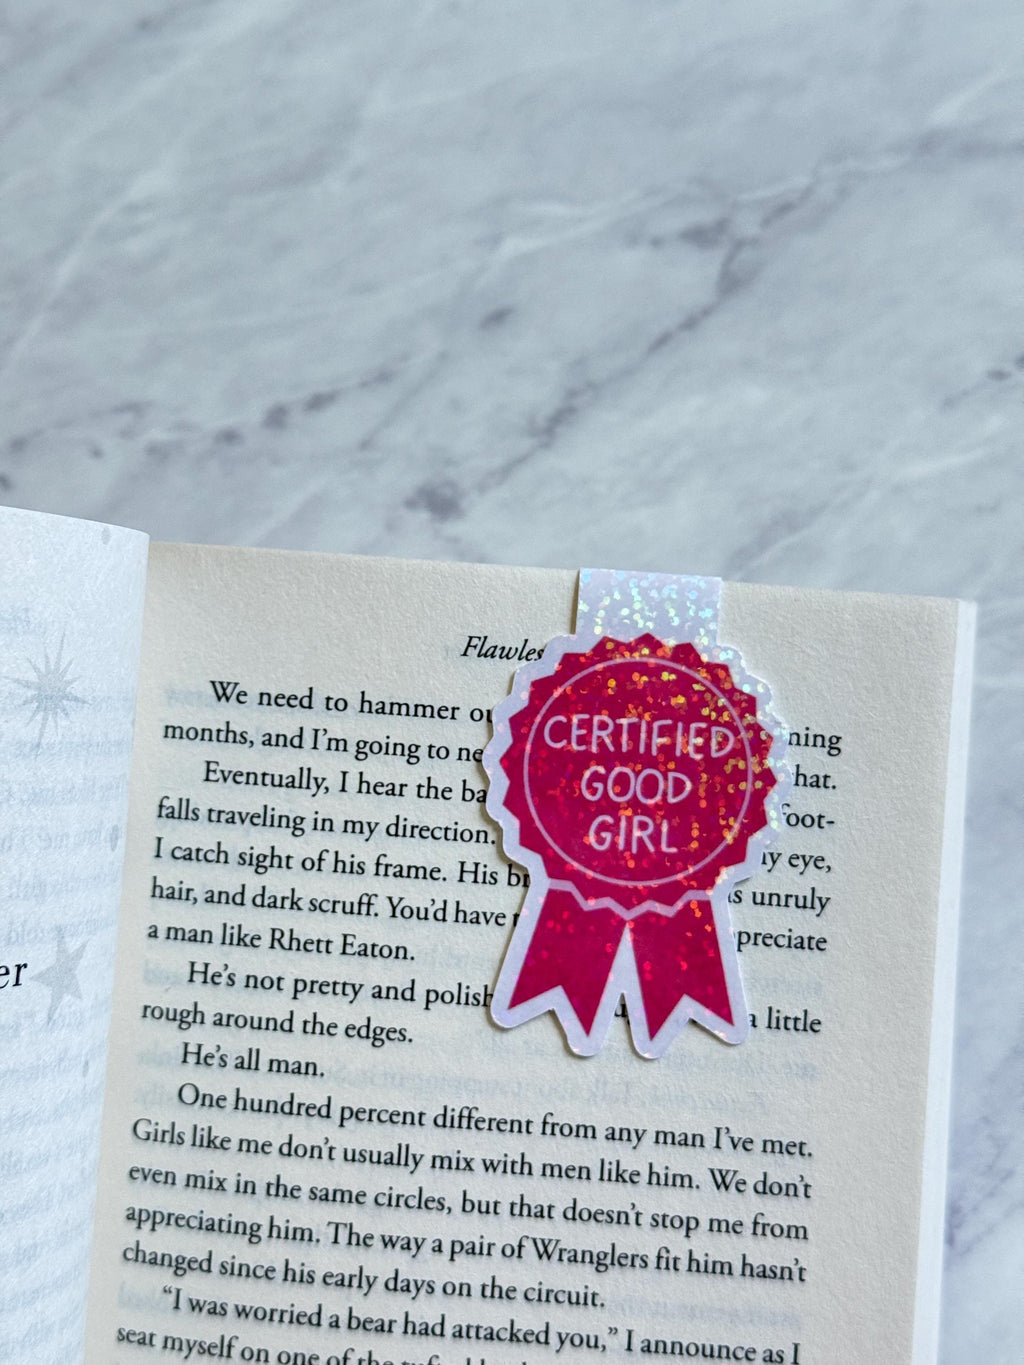 Flawles
CERTIFIED
GOOD
GIRL
We need to hammer ou ning
months, and I'm going to ne hat.
Eventually, I hear the ba foot-
falls traveling in my direction. y eye,
I catch sight of his frame. His br s unruly
hair, and dark scruff. You'd have preciate
a man like Rhett Eaton.
He's not pretty and polish a little
rough around the edges.
He's all man.
One hundred percent different from any man I've met.
Girls like me don't usually mix with men like him. We don't
even mix in the same circles, but that doesn't stop me from
appreciating him. The way a pair of Wranglers fit him hasn't
changed since his early days on the circuit.
"I was worried a bear had attacked you," I announce as I
seat myself on one of the
er